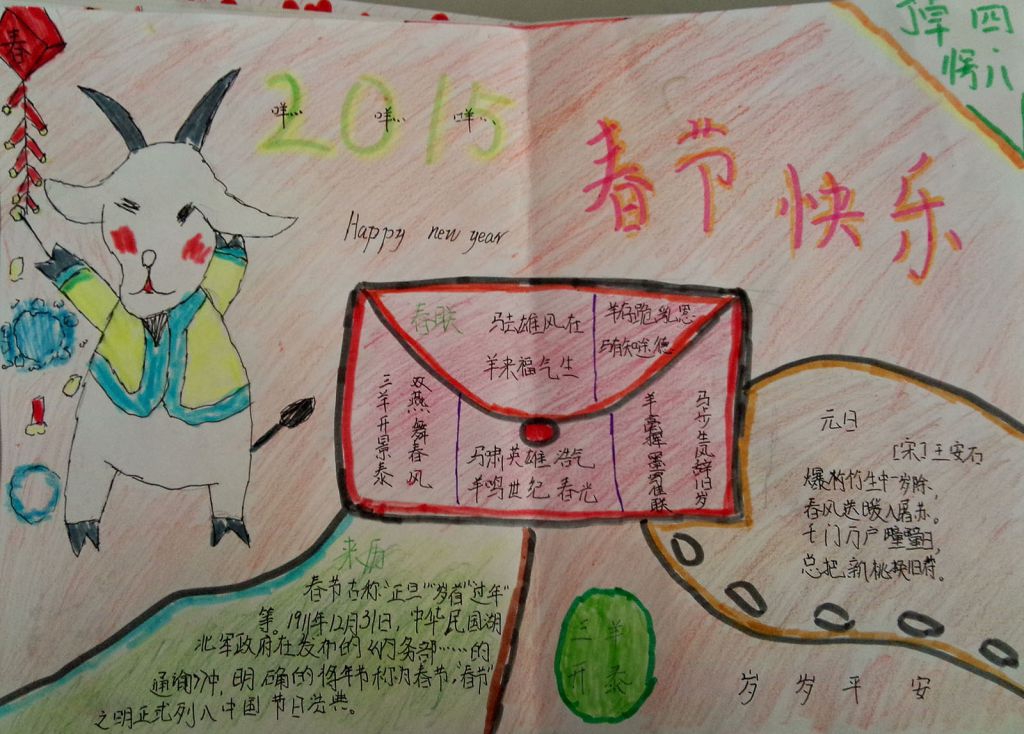 春
四
八
2015
咩… 咩… 咩…
春节快乐
Happy new year
春联
马去雄风在
羊来福气生
羊存跪乳恩
双燕舞春风
三羊开景泰
马肃英雄浩气
羊鸣世纪春光
马步生风辞旧岁
元日
[宋]王安石
爆竹竹生中一岁除,
春风送暖入屠苏。
千门万户曈曈日,
总把新桃换旧符。
来历
春节古称“正旦”“岁首”“过年”
等。1911年12月31日,中华民国湖
北军政府在发布的《内务部……的
通询》冲,明确的将年节称为春节,“春节”
之明正式列入中国节日法典。
三羊
开泰
岁岁平安